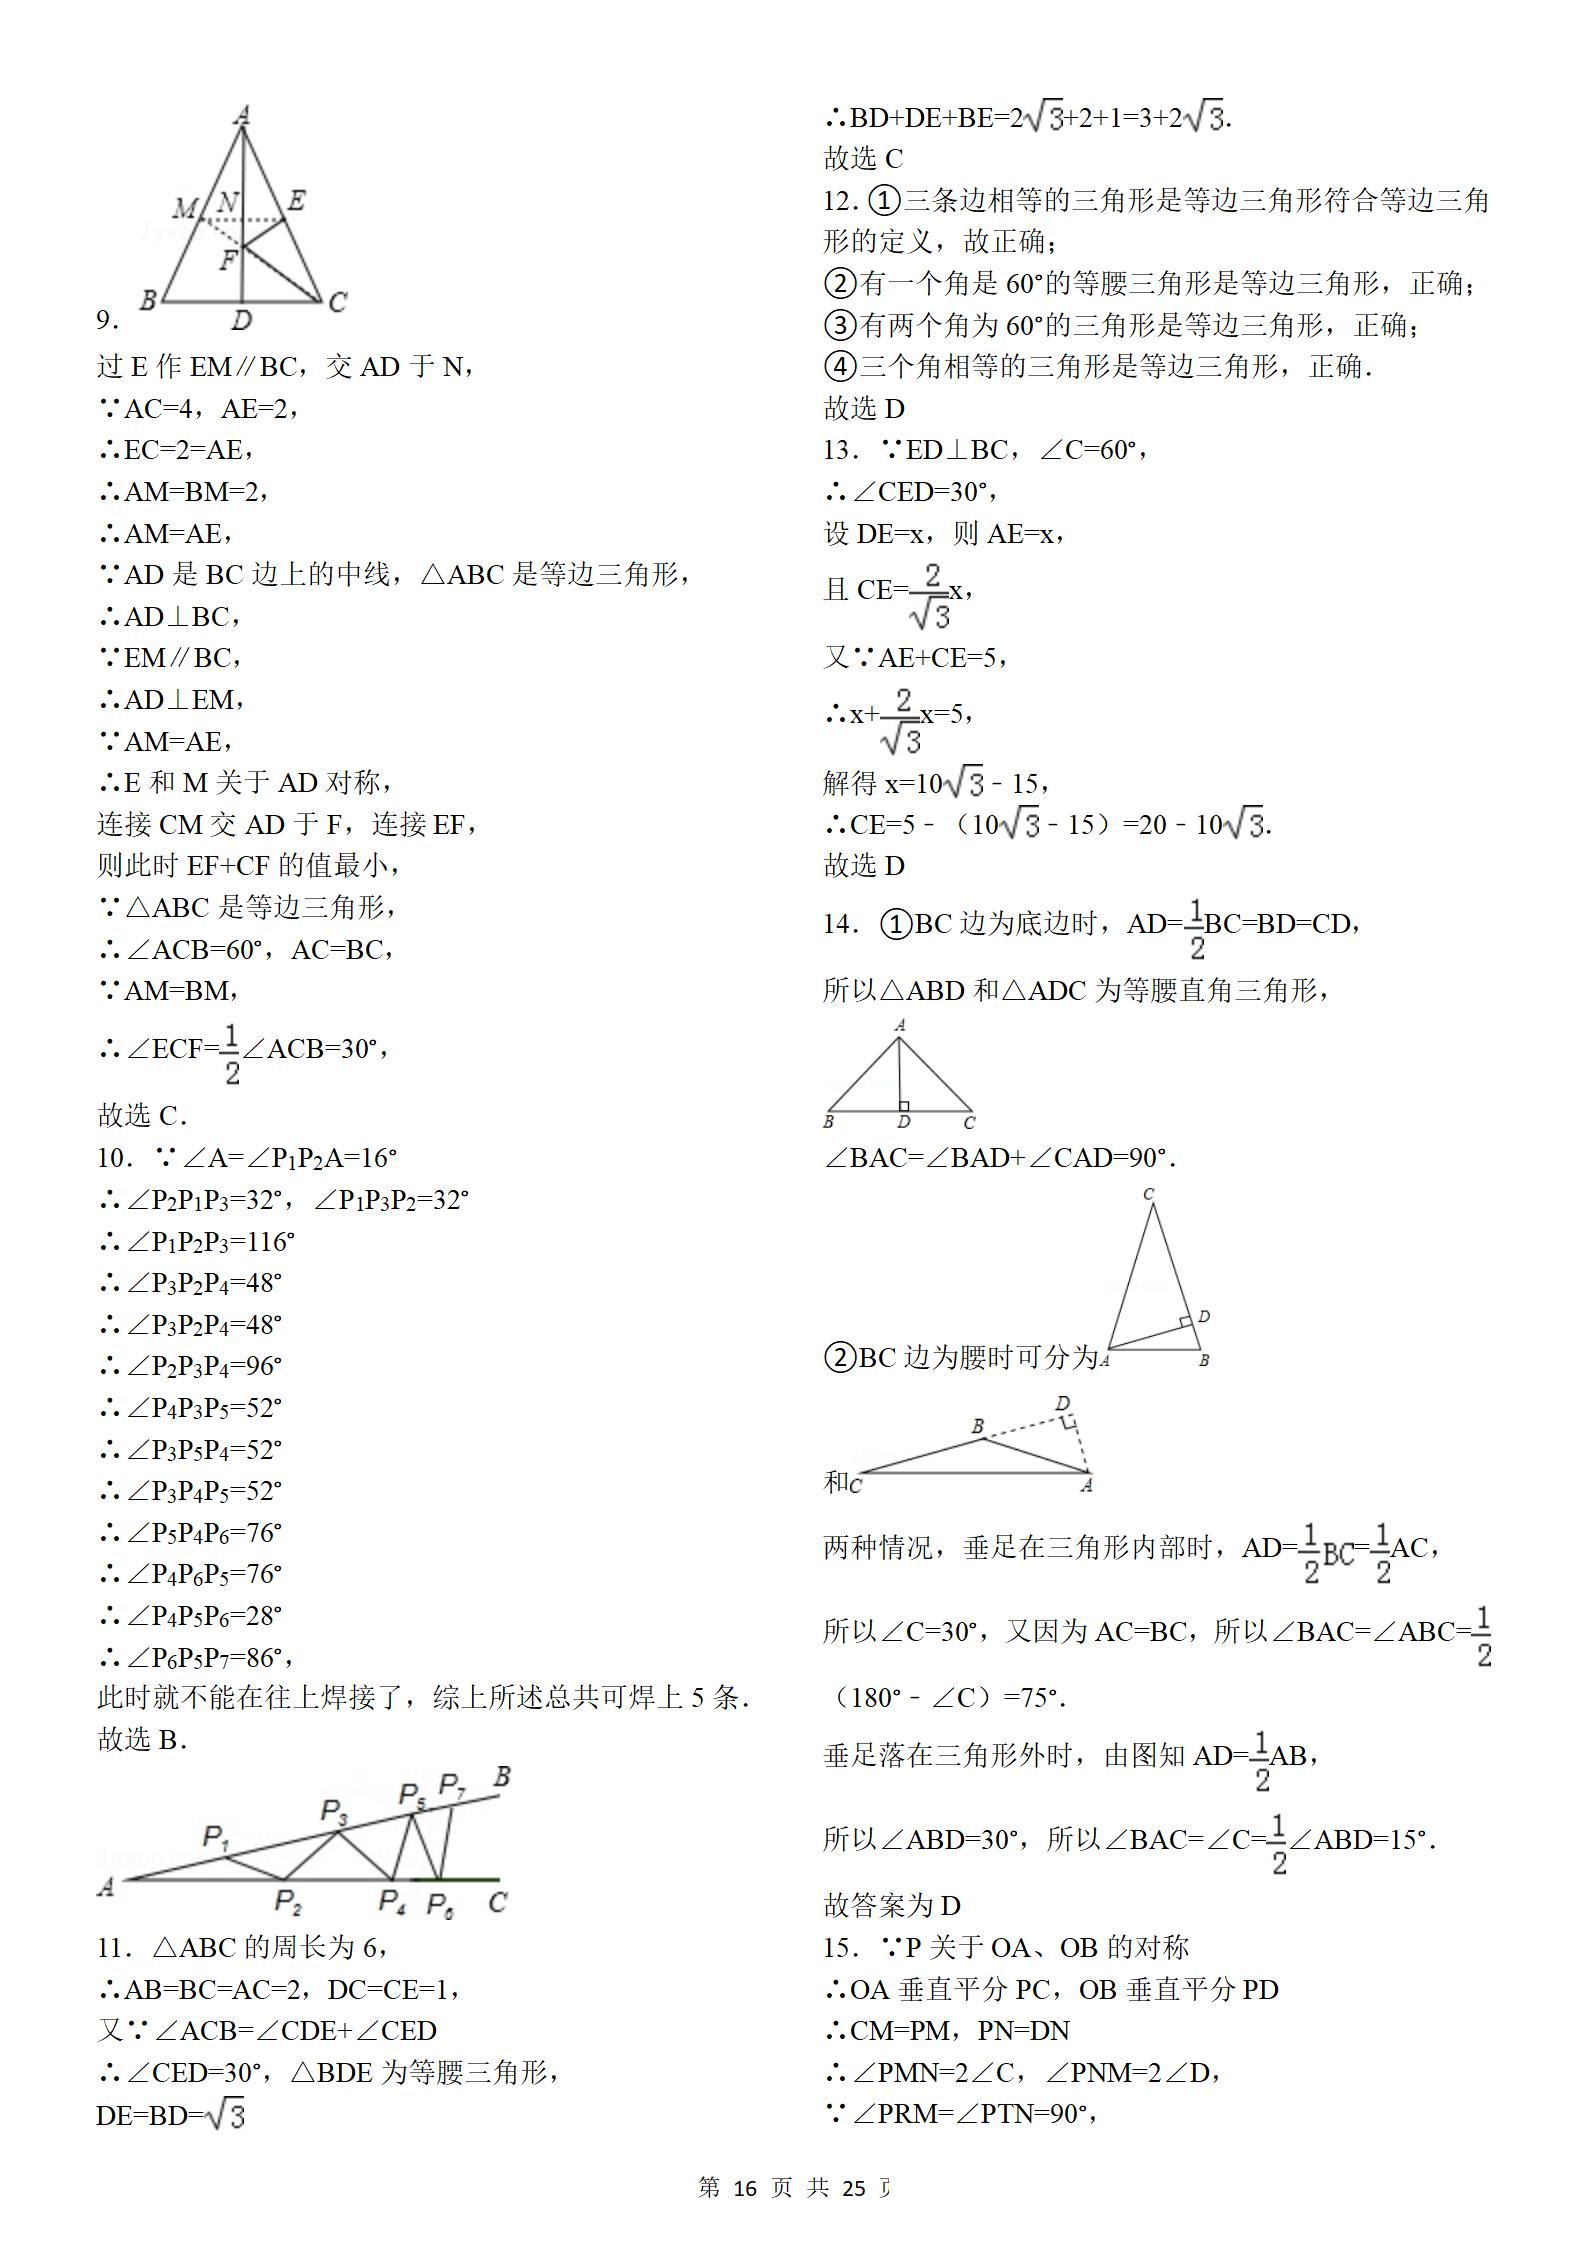 A
M N E
F
B D C
9.
过 E 作 EM∥BC，交 AD 于 N，
∵AC=4，AE=2，
∴EC=2=AE，
∴AM=BM=2，
∴AM=AE，
∵AD 是 BC 边上的中线，△ABC 是等边三角形，
∴AD⊥BC，
∵EM∥BC，
∴AD⊥EM，
∵AM=AE，
∴E 和 M 关于 AD 对称，
连接 CM 交 AD 于 F，连接 EF，
则此时 EF+CF 的值最小，
∵△ABC 是等边三角形，
∴∠ACB=60°，AC=BC，
∵AM=BM，
∴∠ECF=1/2∠ACB=30°，
故选 C．
10．∵∠A=∠P₁P₂A=16°
∴∠P₂P₁P₃=32°，∠P₁P₃P₂=32°
∴∠P₁P₂P₃=116°
∴∠P₃P₂P₄=48°
∴∠P₃P₂P₄=48°
∴∠P₂P₃P₄=96°
∴∠P₄P₃P₅=52°
∴∠P₃P₅P₄=52°
∴∠P₃P₄P₅=52°
∴∠P₅P₄P₆=76°
∴∠P₄P₆P₅=76°
∴∠P₄P₅P₆=28°
∴∠P₆P₅P₇=86°，
此时就不能在往上焊接了，综上所述总共可焊上 5 条．
故选 B．
P₁ P₃ P₅ P₇ B
A P₂ P₄ P₆ C
11．△ABC 的周长为 6，
∴AB=BC=AC=2，DC=CE=1，
又∵∠ACB=∠CDE+∠CED
∴∠CED=30°，△BDE 为等腰三角形，
DE=BD=√3
∴BD+DE+BE=2√3+2+1=3+2√3．
故选 C
12．①三条边相等的三角形是等边三角形符合等边三角
形的定义，故正确；
②有一个角是 60°的等腰三角形是等边三角形，正确；
③有两个角为 60°的三角形是等边三角形，正确；
④三个角相等的三角形是等边三角形，正确．
故选 D
13．∵ED⊥BC，∠C=60°，
∴∠CED=30°，
设 DE=x，则 AE=x，
且 CE=2/√3x，
又∵AE+CE=5，
∴x+2/√3x=5，
解得 x=10√3﹣15，
∴CE=5﹣（10√3﹣15）=20﹣10√3．
故选 D
14．①BC 边为底边时，AD=1/2BC=BD=CD，
所以△ABD 和△ADC 为等腰直角三角形，
A
B D C
∠BAC=∠BAD+∠CAD=90°．
C
D
②BC 边为腰时可分为A B
D
B
和C A
两种情况，垂足在三角形内部时，AD=1/2BC=1/2AC，
所以∠C=30°，又因为 AC=BC，所以∠BAC=∠ABC=1/2
（180°﹣∠C）=75°．
垂足落在三角形外时，由图知 AD=1/2AB，
所以∠ABD=30°，所以∠BAC=∠C=1/2∠ABD=15°．
故答案为 D
15．∵P 关于 OA、OB 的对称
∴OA 垂直平分 PC，OB 垂直平分 PD
∴CM=PM，PN=DN
∴∠PMN=2∠C，∠PNM=2∠D，
∵∠PRM=∠PTN=90°，
第 16 页 共 25